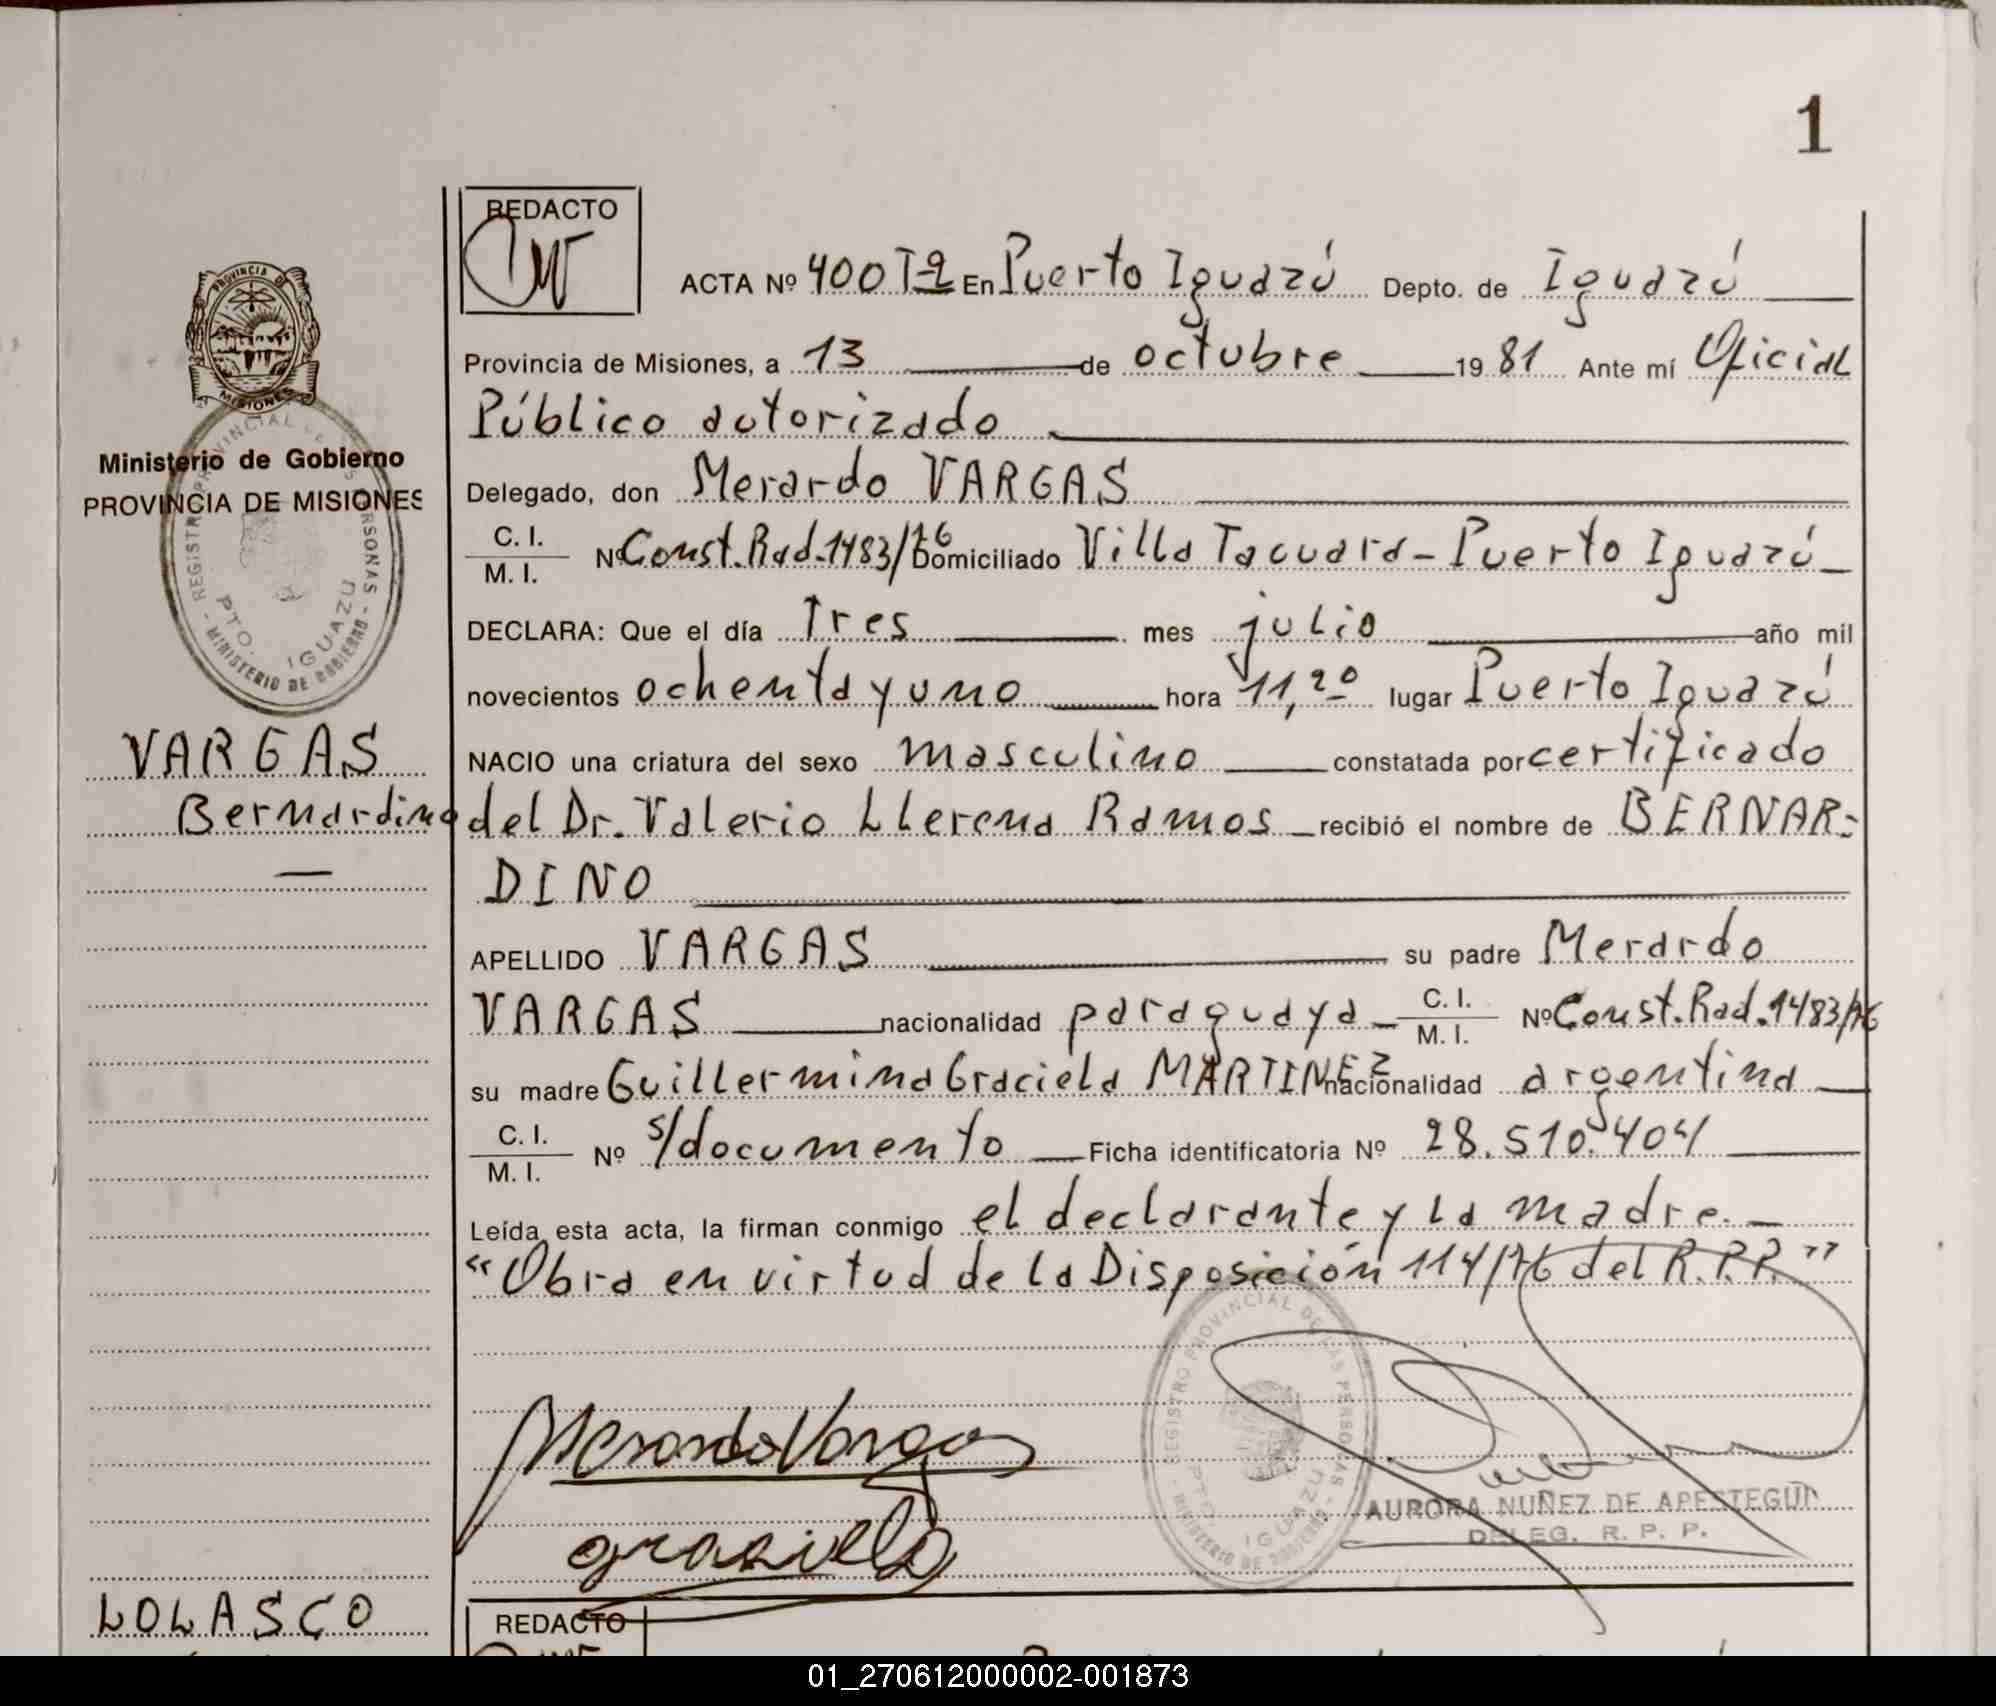 1
REDACTO
ACTA Nº 400 Tº2 En Puerto Iguazú Depto. de Iguazú
Provincia de Misiones, a 13 de octubre 1981 Ante mí Oficial
Público autorizado
Delegado, don Merardo VARGAS
C. I.
M. I. Nº Const. Rad. 1483/76 Domiciliado Villa Tacuara - Puerto Iguazú
DECLARA: Que el día Tres mes julio año mil
novecientos ochenta y uno hora 11,20 lugar Puerto Iguazú
NACIO una criatura del sexo masculino constatada por certificado
del Dr. Valerio Llerena Ramos recibió el nombre de BERNAR-
DINO
APELLIDO VARGAS su padre Merardo
VARGAS nacionalidad paraguaya C. I. M. I. Nº Const. Rad. 1483/76
su madre Guillermina Graciela MARTINEZ nacionalidad argentina
C. I.
M. I. Nº s/documento Ficha identificatoria Nº 28.510.404
Leída esta acta, la firman conmigo el declarante y la madre.
"Obra en virtud de la Disposición 114/76 del R.P.P."
Merardo Vargas
AURORA NUÑEZ DE APESTEGUI
DELEG. R. P. P.
REGISTRO PROVINCIAL DE LAS PERSONAS - MINISTERIO DE GOBIERNO -
PTO. IGUAZU
PROVINCIA DE
MISIONES
Ministerio de Gobierno
PROVINCIA DE MISIONES
REGISTRO PROVINCIAL DE LAS PERSONAS - MINISTERIO DE GOBIERNO -
PTO. IGUAZU
VARGAS
Bernardino
LOLASCO
REDACTO
01_270612000002-001873